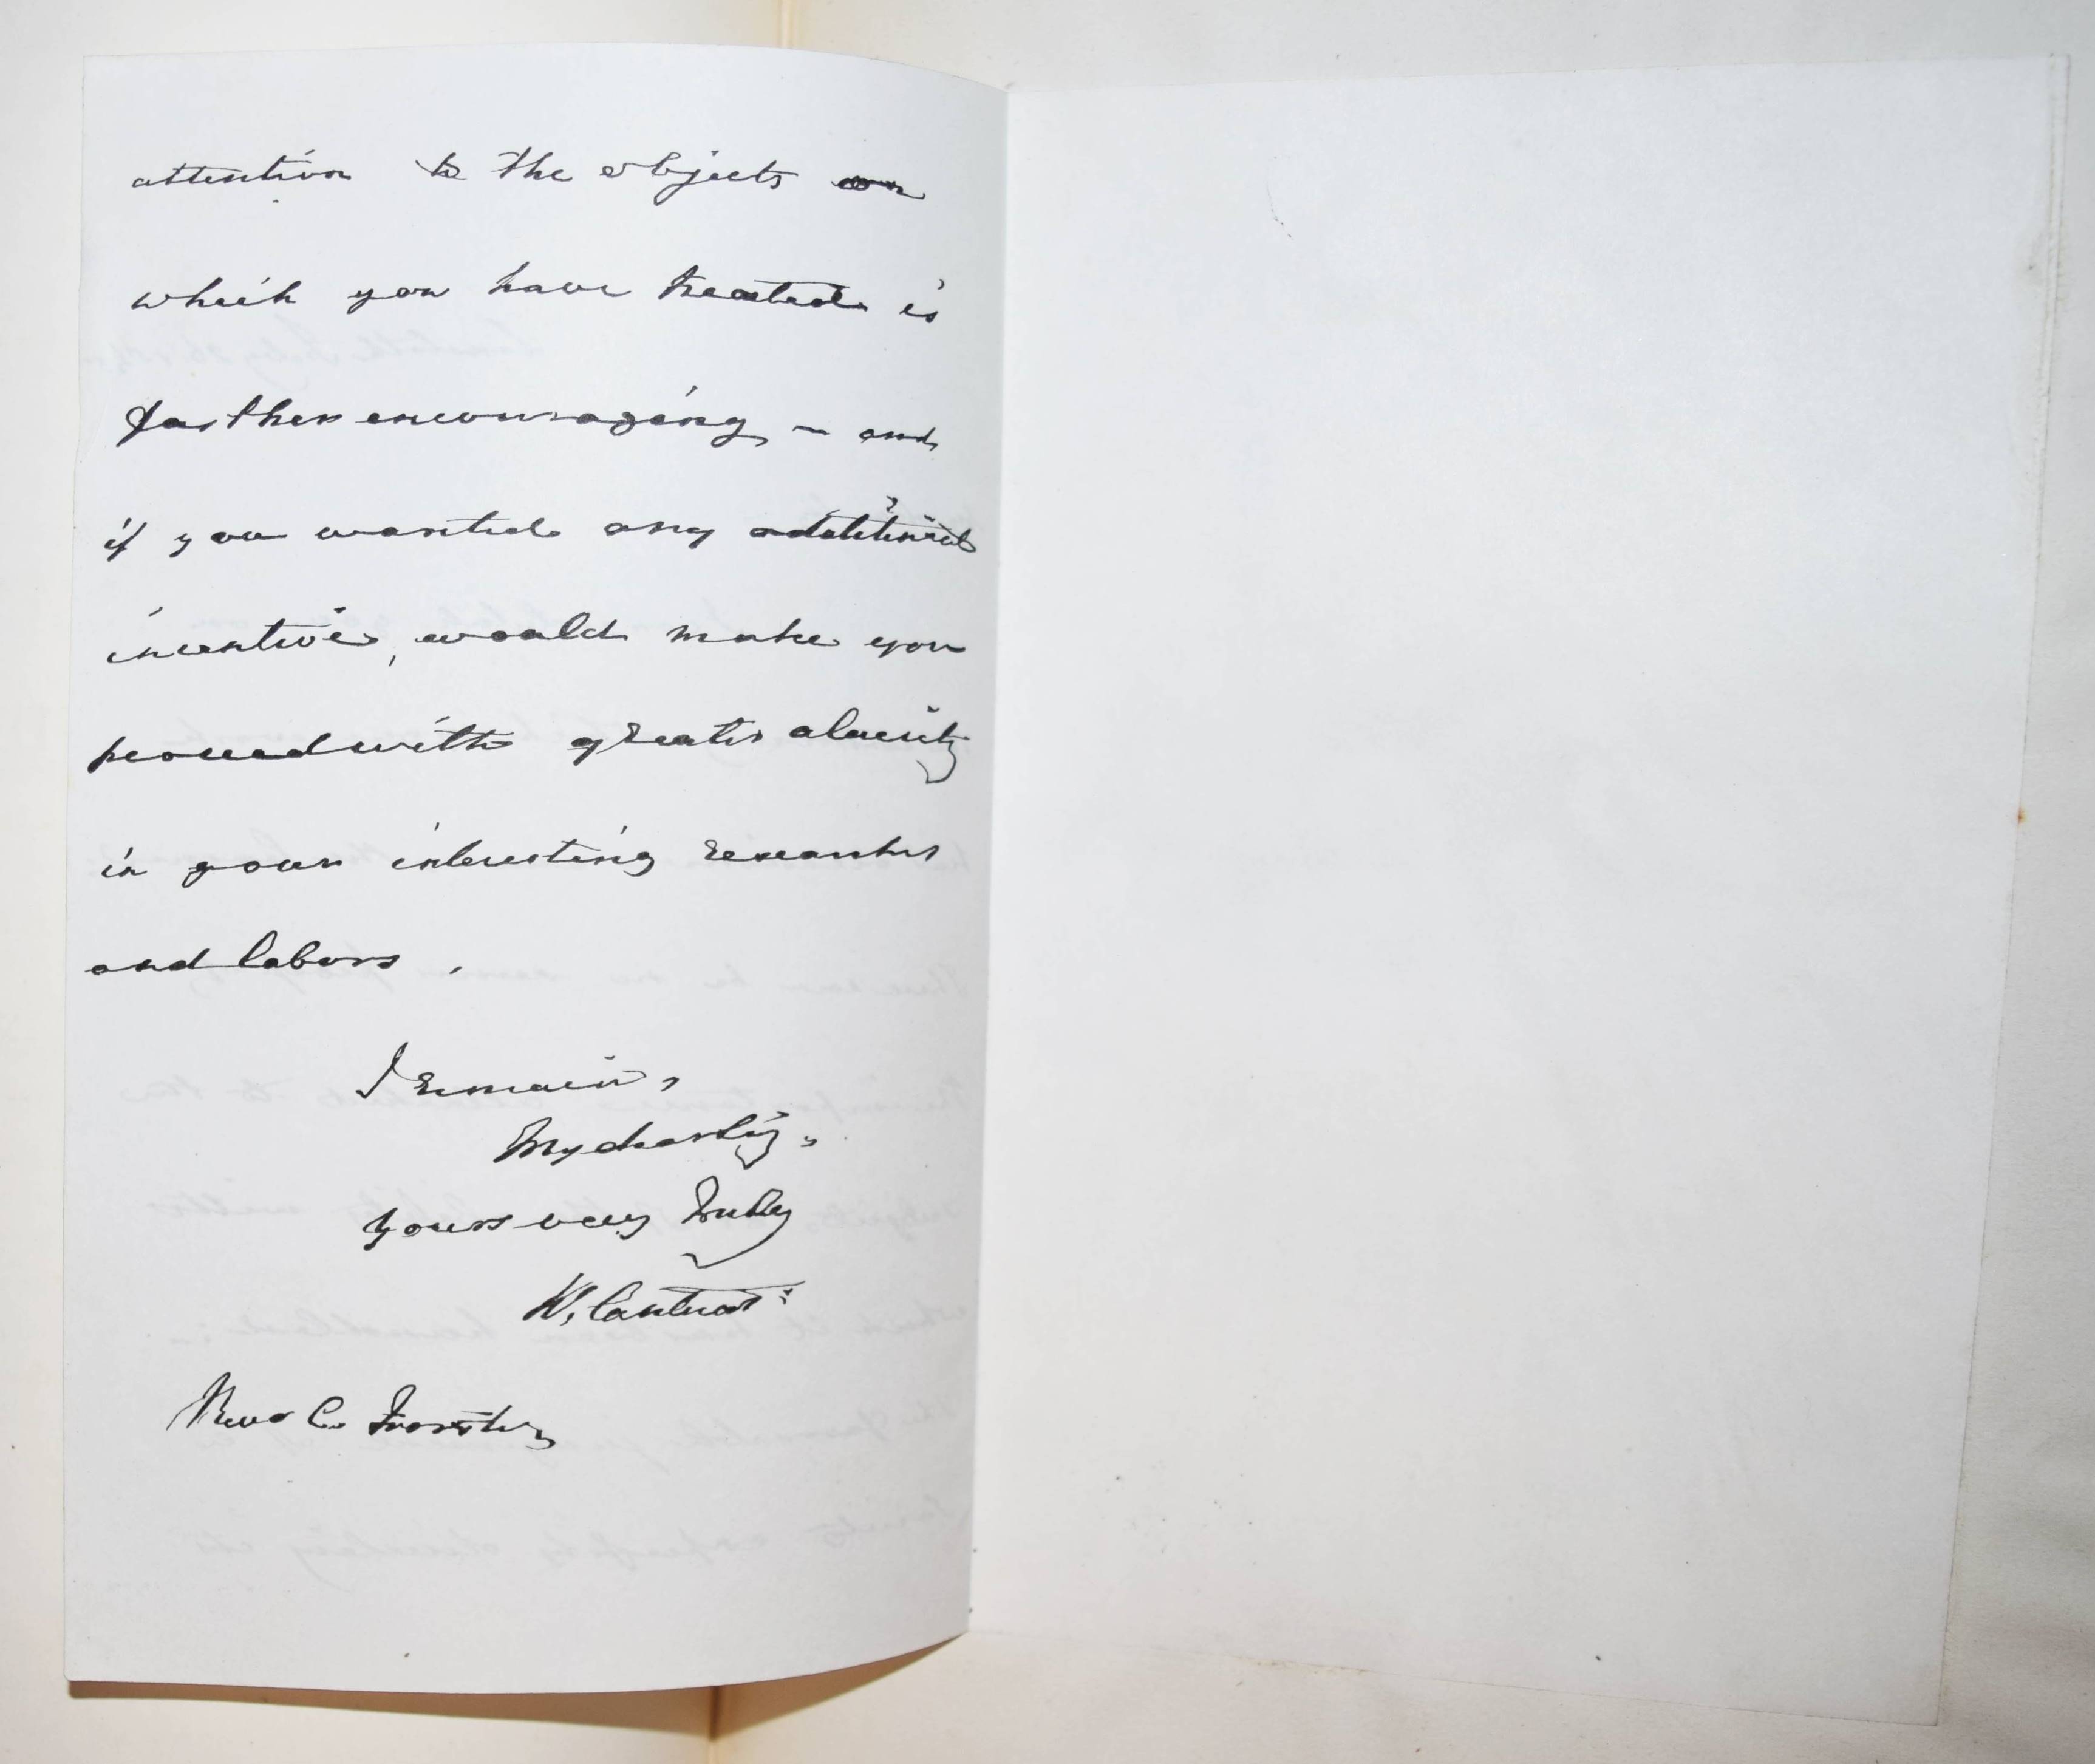 attention to the objects on
which you have treated is
farther encouraging, – and
if you wanted any additional
incentive, would make you
proceed with greater alacrity
in your interesting researches
and labors.
I remain,
My dear Sir,
Yours very Truly
W. Cantuar:
Revd C. Forster